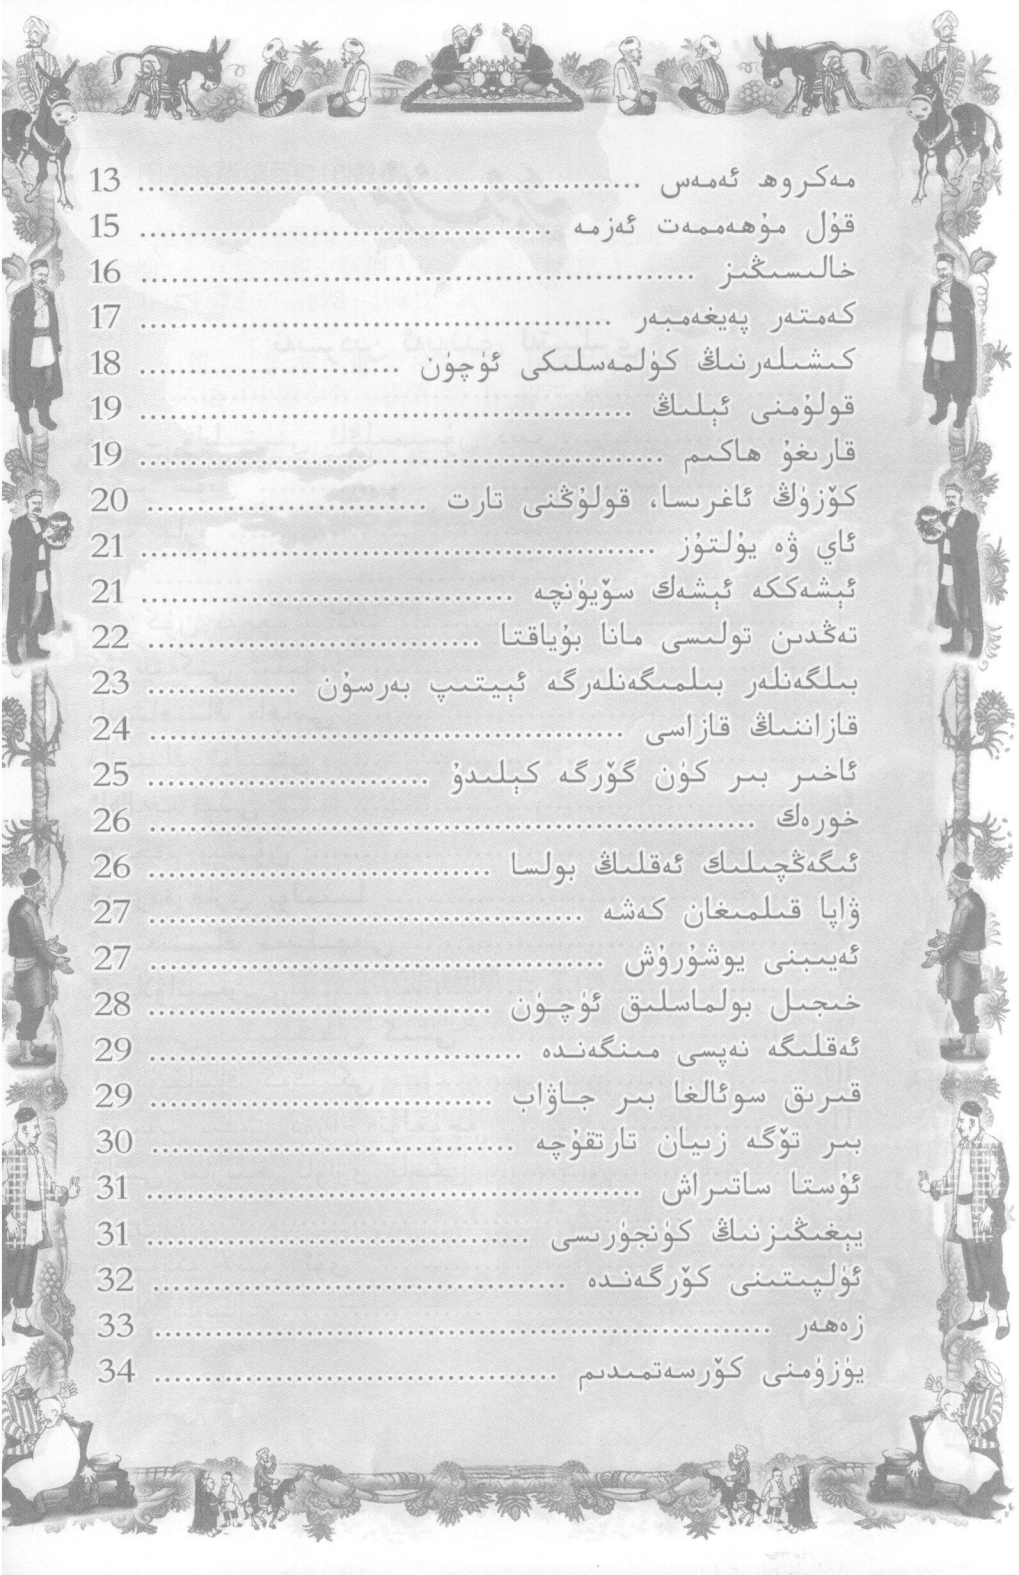 مەكروھ ئەمەس ........................................ 13
قۇل مۇھەممەت ئەزمە ........................................ 15
خالىسىڭىز ........................................ 16
كەمتەر پەيغەمبەر ........................................ 17
كىشىلەرنىڭ كۈلمەسلىكى ئۈچۈن ........................................ 18
قولۇمنى ئېلىڭ ........................................ 19
قارىغۇ ھاكىم ........................................ 19
كۆزۈڭ ئاغرىسا، قولۇڭنى تارت ........................................ 20
ئاي ۋە يۇلتۇز ........................................ 21
ئېشەككە ئېشەك سۆيۈنچە ........................................ 21
تەڭدىن تولىسى مانا بۇياقتا ........................................ 22
بىلگەنلەر بىلمىگەنلەرگە ئېيتىپ بەرسۇن ........................................ 23
قازاننىڭ قازاسى ........................................ 24
ئاخىر بىر كۈن گۆرگە كېلىدۇ ........................................ 25
خورەك ........................................ 26
ئىگەڭچىلىك ئەقلىڭ بولسا ........................................ 26
ۋاپا قىلمىغان كەشە ........................................ 27
ئەيىبنى يوشۇرۇش ........................................ 27
خىجىل بولماسلىق ئۈچۈن ........................................ 28
ئەقلىگە نەپسى مىنگەندە ........................................ 29
قىرىق سوئالغا بىر جاۋاب ........................................ 29
بىر تۆگە زىيان تارتقۇچە ........................................ 30
ئۇستا ساتىراش ........................................ 31
يېغىڭىزنىڭ كۈنجۈرىسى ........................................ 31
ئۈلپىتىنى كۆرگەندە ........................................ 32
زەھەر ........................................ 33
يۈزۈمنى كۆرسەتمىدىم ........................................ 34